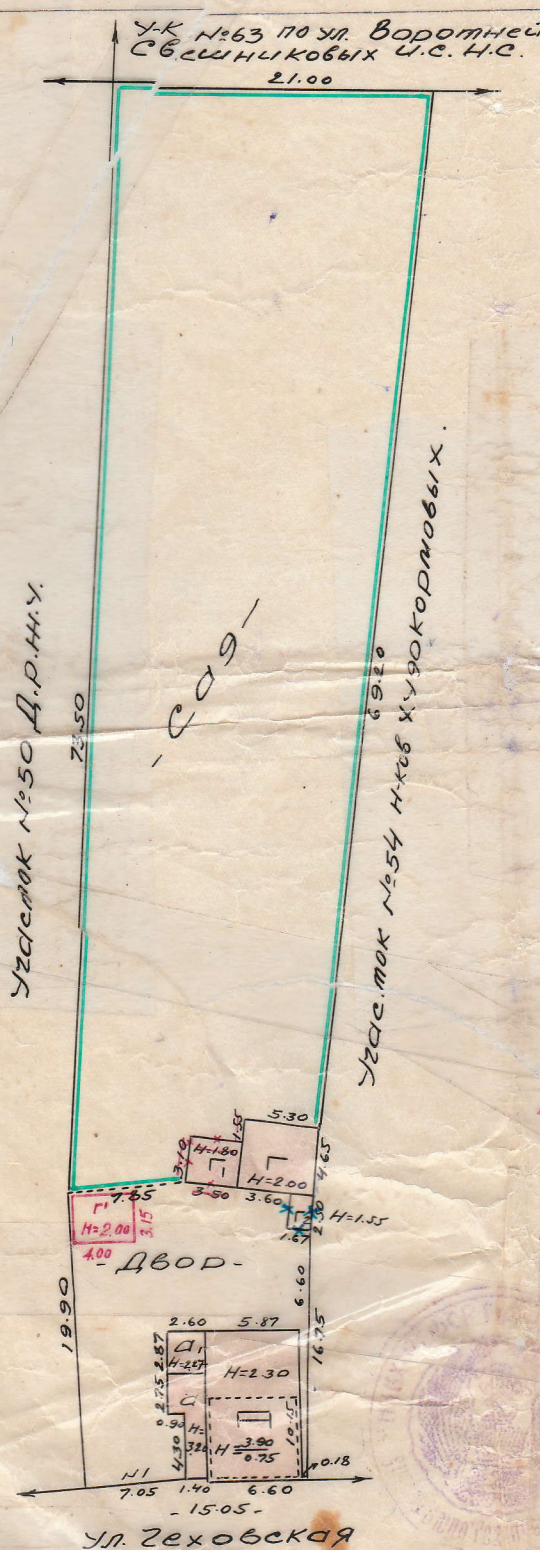 У-К №63 по ул. Воротней
Свешниковых И.С. Н.С.
21.00
Участок №50 Д.Р.Ж.У.
73.50
-Сад-
69.20
Участок №54 Н-ков Худокормовых.
5.30
1.55
H=1.80
3.10
Г
Г
H=2.00
4.65
3.50
3.60
7.85
Г'
H=2.00
3.15
4.00
2.50
H=1.55
1.67
-ДВОР-
19.90
6.60
16.75
2.60
5.87
2.87
а,
H=2.27
H=2.30
2.75
а
0.90
H=
3.20
4.30
H=3.90
0.75
10.15
0.18
№1
7.05
1.40
6.60
-15.05-
Ул. Чеховская